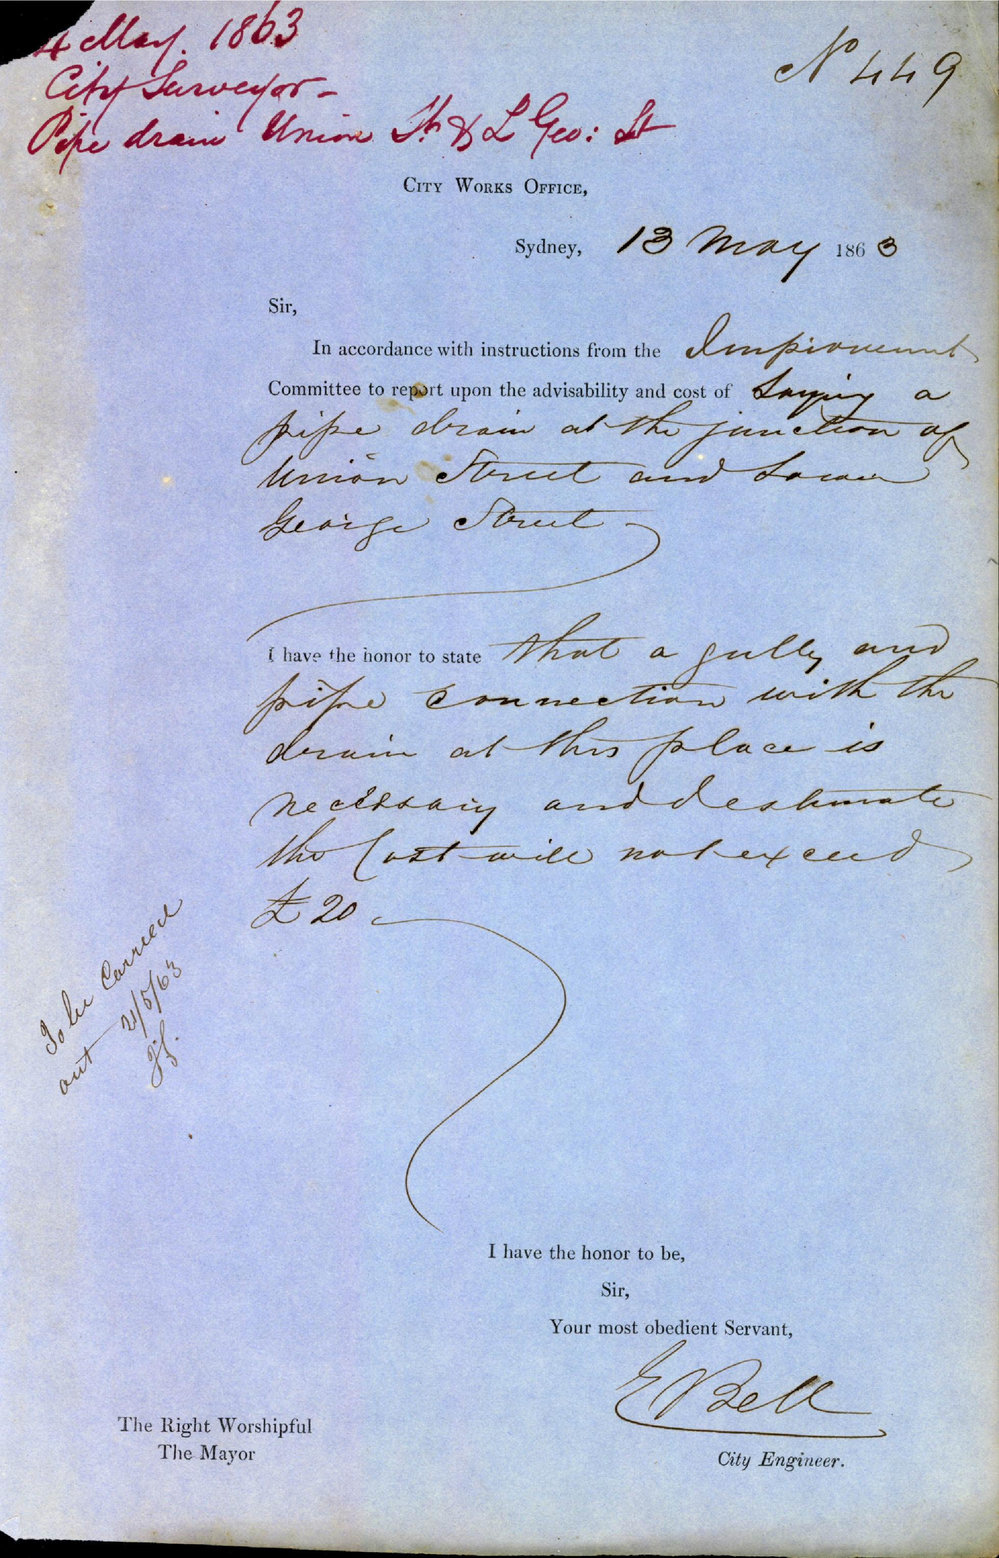 4 May. 1863
City Surveyor -
Pipe drain Union St & L Geo: St
No 449
City Works Office,
Sydney, 13 May 1863
Sir,
In accordance with instructions from the Improvement
Committee to report upon the advisability and cost of Laying a
pipe drain at the junction of
Union Street and Lower
George Street
I have the honor to state that a gully and
pipe connection with the
drain at this place is
necessary and I estimate
the Cost will not exceed
£20
To be Carried
out 21/5/63
I have the honor to be,
Sir,
Your most obedient Servant,
E Bell
City Engineer.
The Right Worshipful
The Mayor